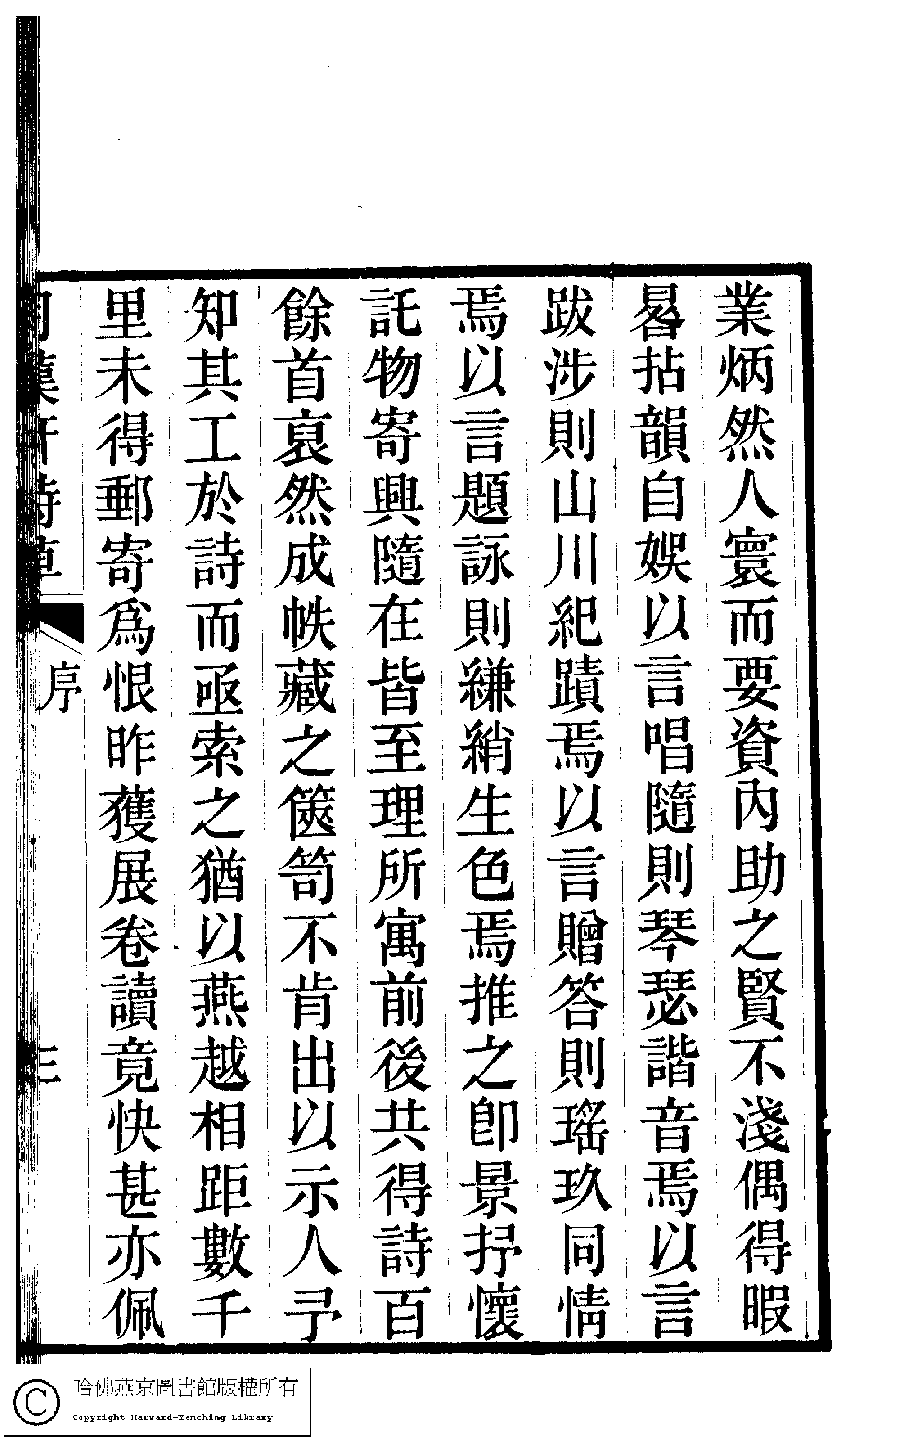 業炳然人寰而要資內助之賢不淺偶得暇
晷拈韻自娛以言唱隨則琴瑟諧音焉以言
跋涉則山川紀蹟焉以言贈答則瑤玖同情
焉以言題詠則縑緗生色焉推之卽景抒懷
託物寄興隨在皆至理所寓前後共得詩百
餘首裒然成帙藏之篋笥不肯出以示人予
知其工於詩而亟索之猶以燕越相距數千
里未得郵寄爲恨昨獲展卷讀竟快甚亦佩
詩草
序
三
哈佛燕京圖書館版權所有
Copyright Harvard-Yenching Library